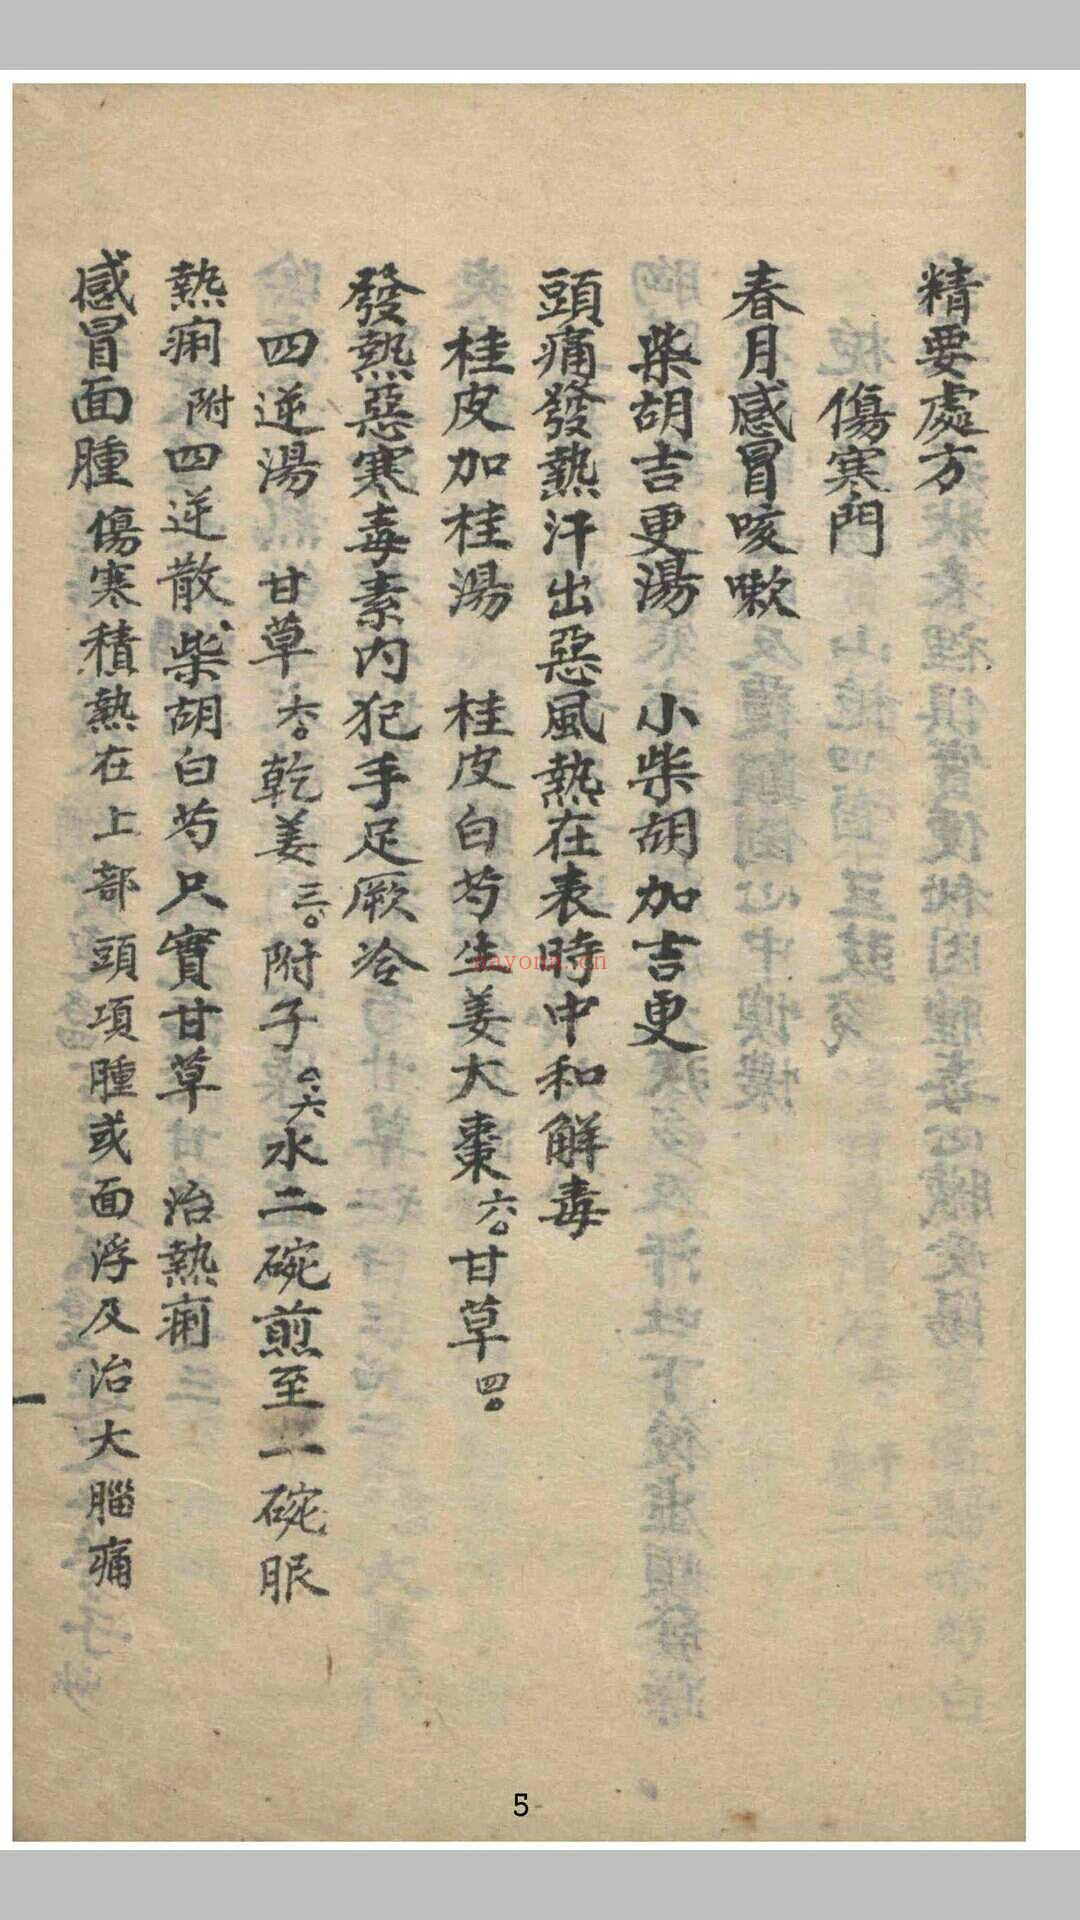 精要處方
傷寒門
春月感冒咳嗽
柴胡吉更湯　小柴胡加吉更
頭痛發熱汗出惡風熱在表時中和解毒
桂皮加桂湯　桂皮白芍生姜大棗六。甘草四。
發熱惡寒毒素内犯手足厥冷
四逆湯　甘草六。乾姜三。附子〇.六水二碗煎至一碗服
熱痢附四逆散、柴胡白芍只實甘草　治熱痢
感冒面腫傷寒積熱在上部頭項腫或面浮及治大腦痛
一
nayona.cn
5